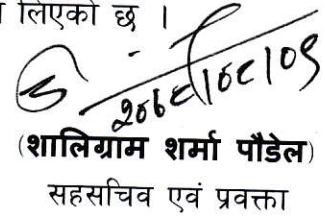 लिएको छ ।
२०८१/०८/०९
(शालिग्राम शर्मा पौडेल)
सहसचिव एवं प्रवक्ता